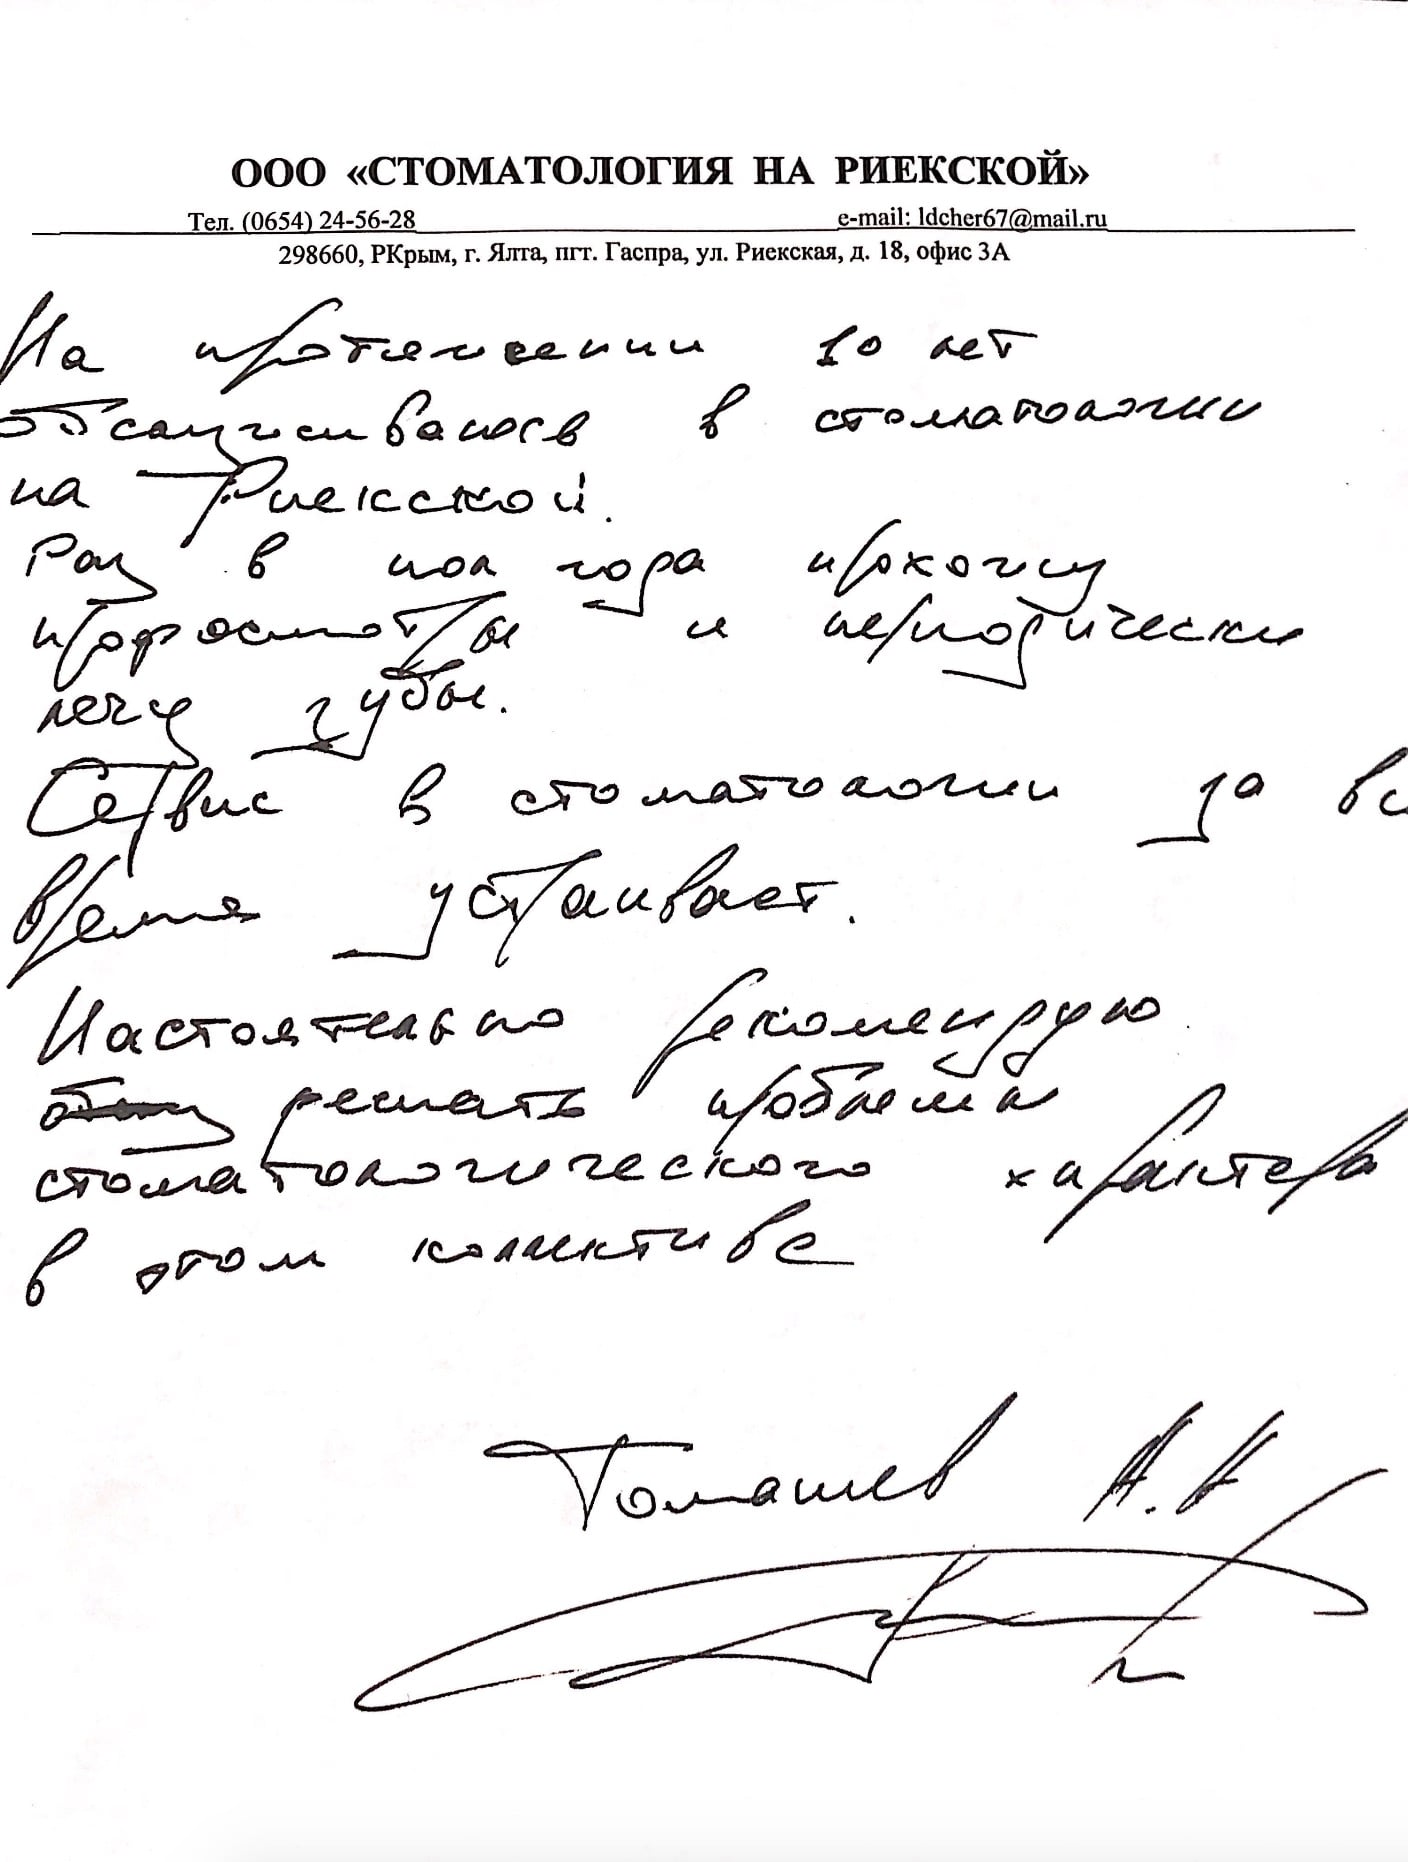 ООО «СТОМАТОЛОГИЯ НА РИЕКСКОЙ»
Тел. (0654) 24-56-28 e-mail: ldcher67@mail.ru
298660, РКрым, г. Ялта, пгт. Гаспра, ул. Риекская, д. 18, офис 3А
На протяжении 10 лет
обслуживаюсь в стоматологии
на Риекской.
Раз в пол года прохожу
профосмотры и периодически
лечу зубы.
Сервис в стоматологии за вс
время устраивает.
Настоятельно рекомендую
решать проблемы
стоматологического характера
в этом коллективе
Томашев А.А